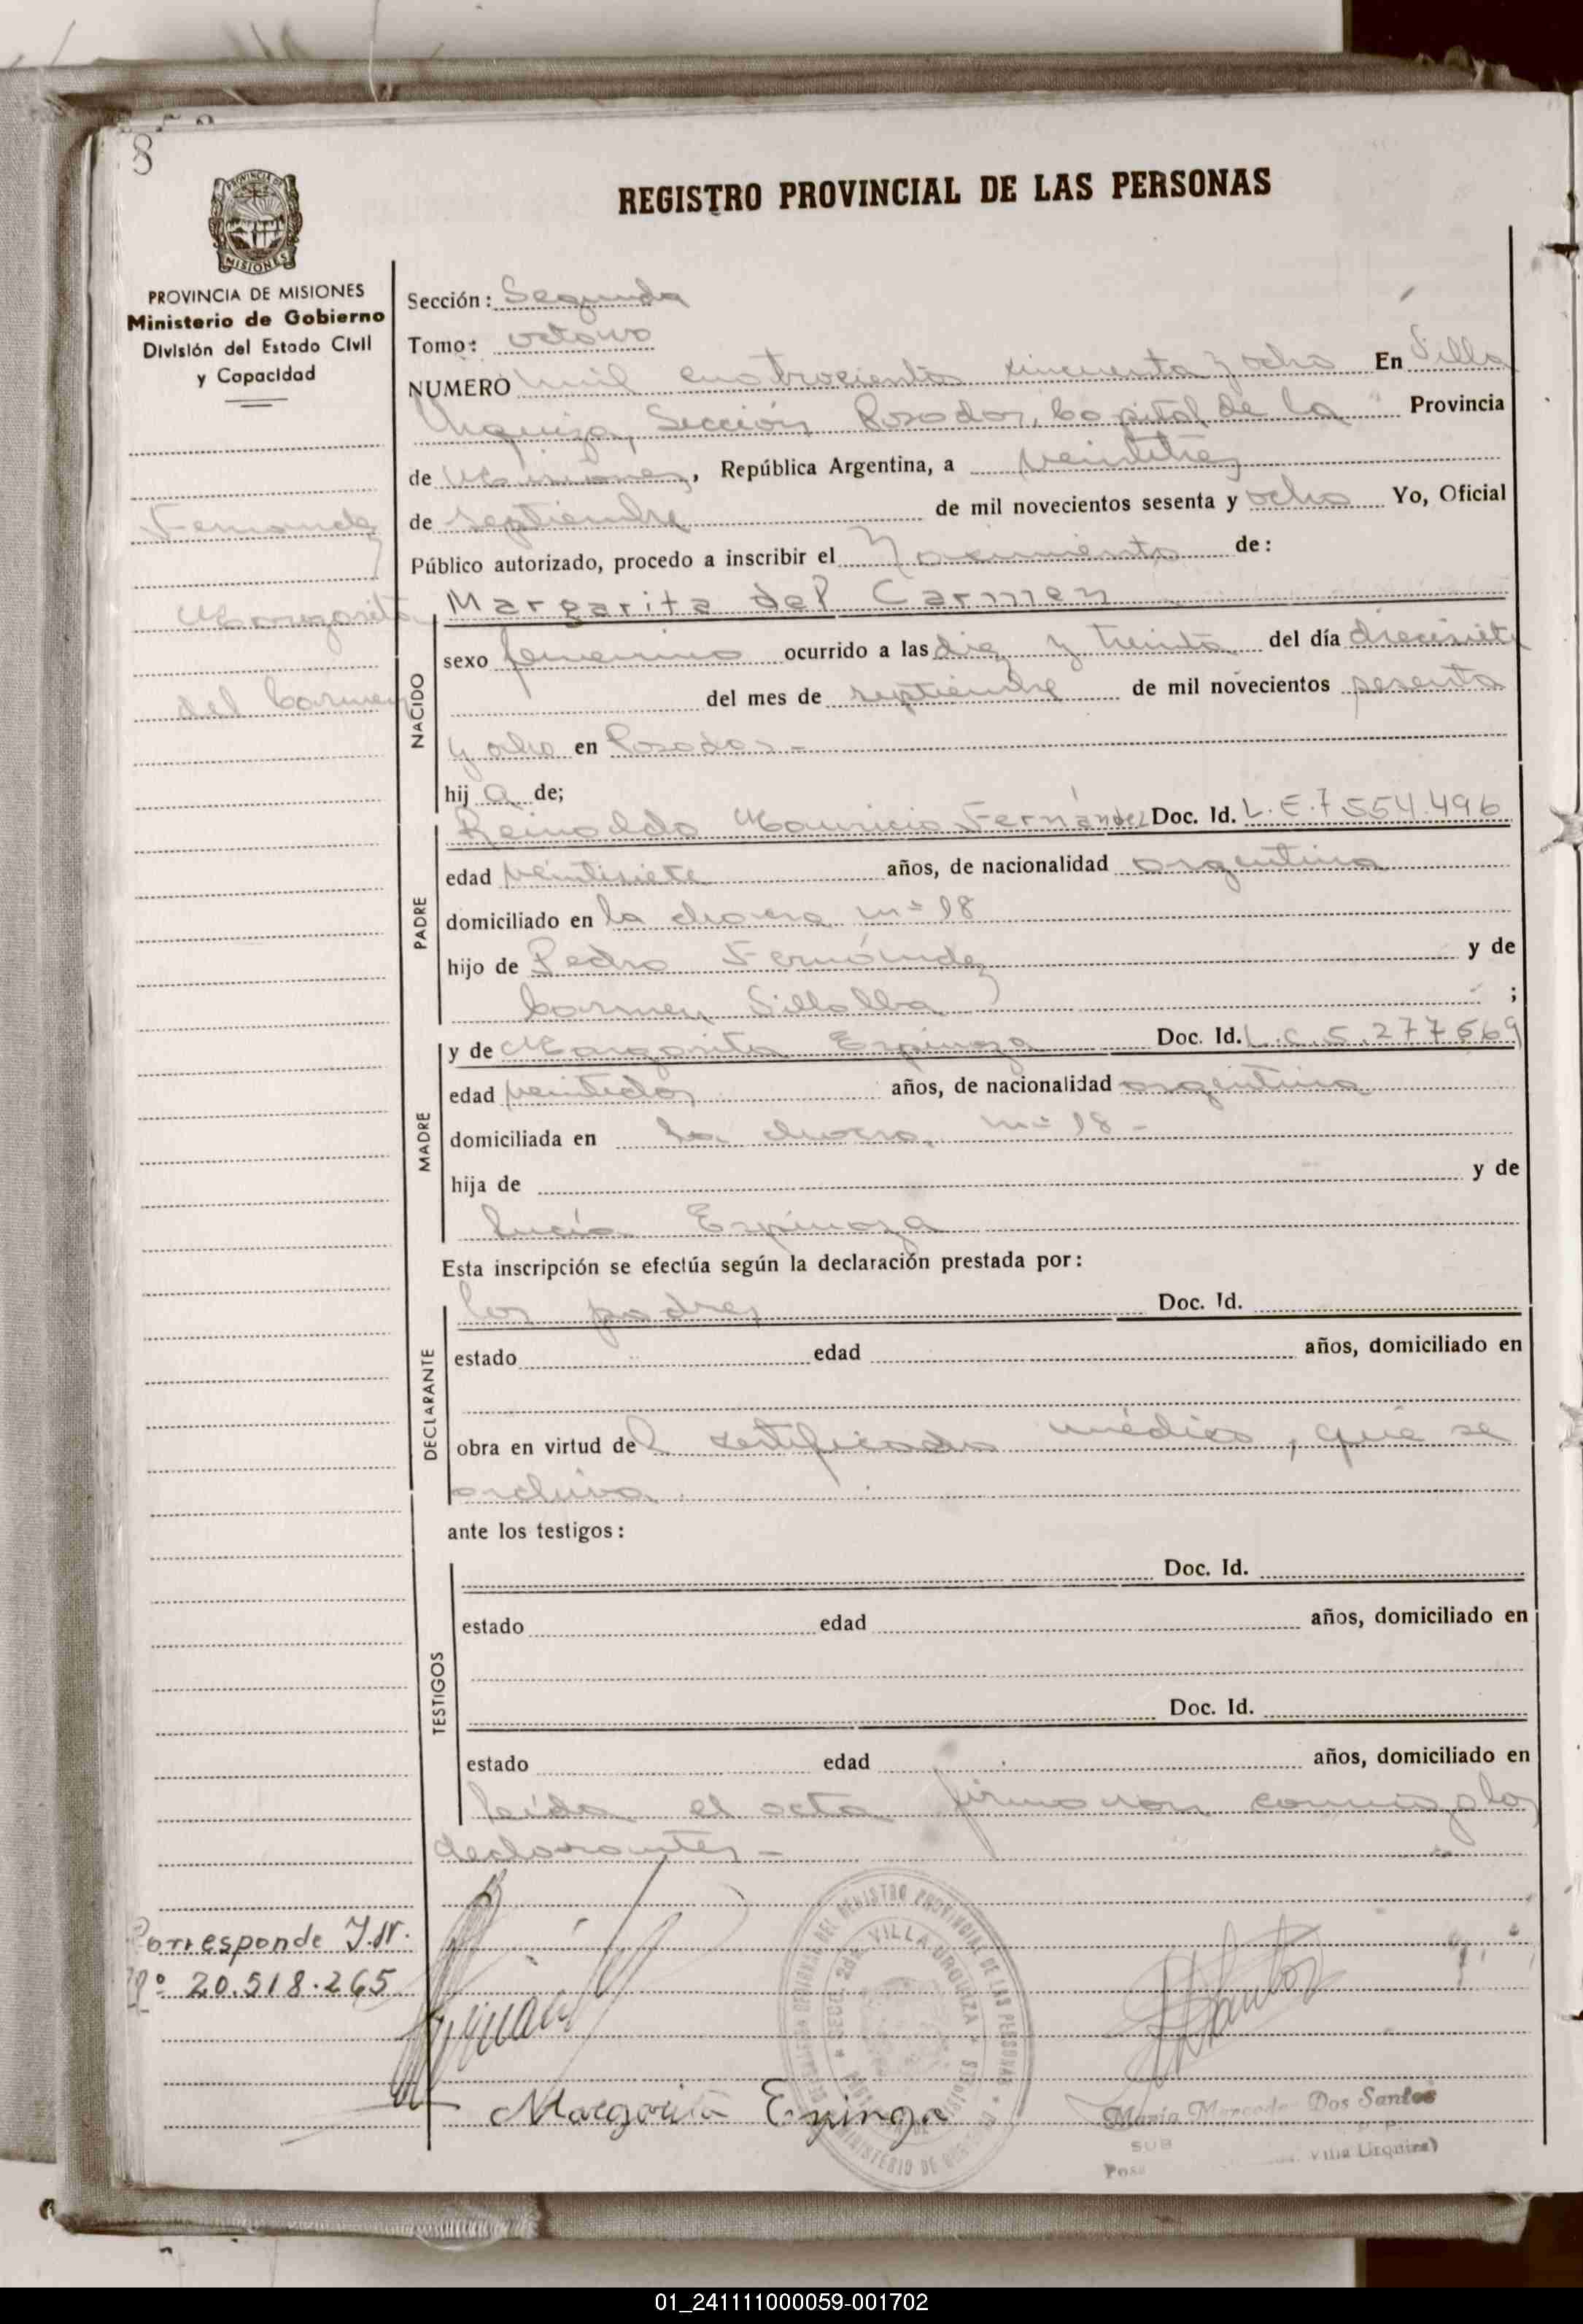 8
REGISTRO PROVINCIAL DE LAS PERSONAS
PROVINCIA DE MISIONES
Ministerio de Gobierno
División del Estado Civil
y Capacidad
Fernandez
Margarita
del Carmen
Sección: Segunda
Tomo: octavo
NUMERO mil cuatrocientos cincuenta y ocho En Villa
Urquiza, Sección Posadas, Capital de la Provincia
de Misiones, República Argentina, a veintitrés
de septiembre de mil novecientos sesenta y ocho Yo, Oficial
Público autorizado, procedo a inscribir el Nacimiento de:
Margarita del Carmen
NACIDO
sexo femenino ocurrido a las diez y treinta del día diecisiete
del mes de septiembre de mil novecientos sesenta
y ocho en Posadas -
hij a de;
PADRE
Reinaldo Mauricio Fernández Doc. Id. L.E.7554.496
edad veintisiete años, de nacionalidad argentina
domiciliado en la chacra nº 18
hijo de Pedro Fernández y de
Carmen Villalba ;
MADRE
y de Margarita Espinoza Doc. Id. L.C.5.277569
edad veintidos años, de nacionalidad argentina
domiciliada en la chacra nº 18 -
hija de y de
Lucía Espinoza
Esta inscripción se efectúa según la declaración prestada por:
DECLARANTE
los padres Doc. Id.
estado edad años, domiciliado en
obra en virtud del certificado médico, que se
archiva
ante los testigos:
TESTIGOS
Doc. Id.
estado edad años, domiciliado en
Doc. Id.
estado edad años, domiciliado en
leída el acta firmaron conmigo los
declarantes -
Corresponde I.N.
Nº 20.518.265
Margarita Espinoza
SECC. 2da. VILLA URQUIZA
DEL REGISTRO PROVINCIAL DE LAS PERSONAS
MINISTERIO DE
María Mercedes Dos Santos
SUB
Villa Urquiza)
01_241111000059-001702